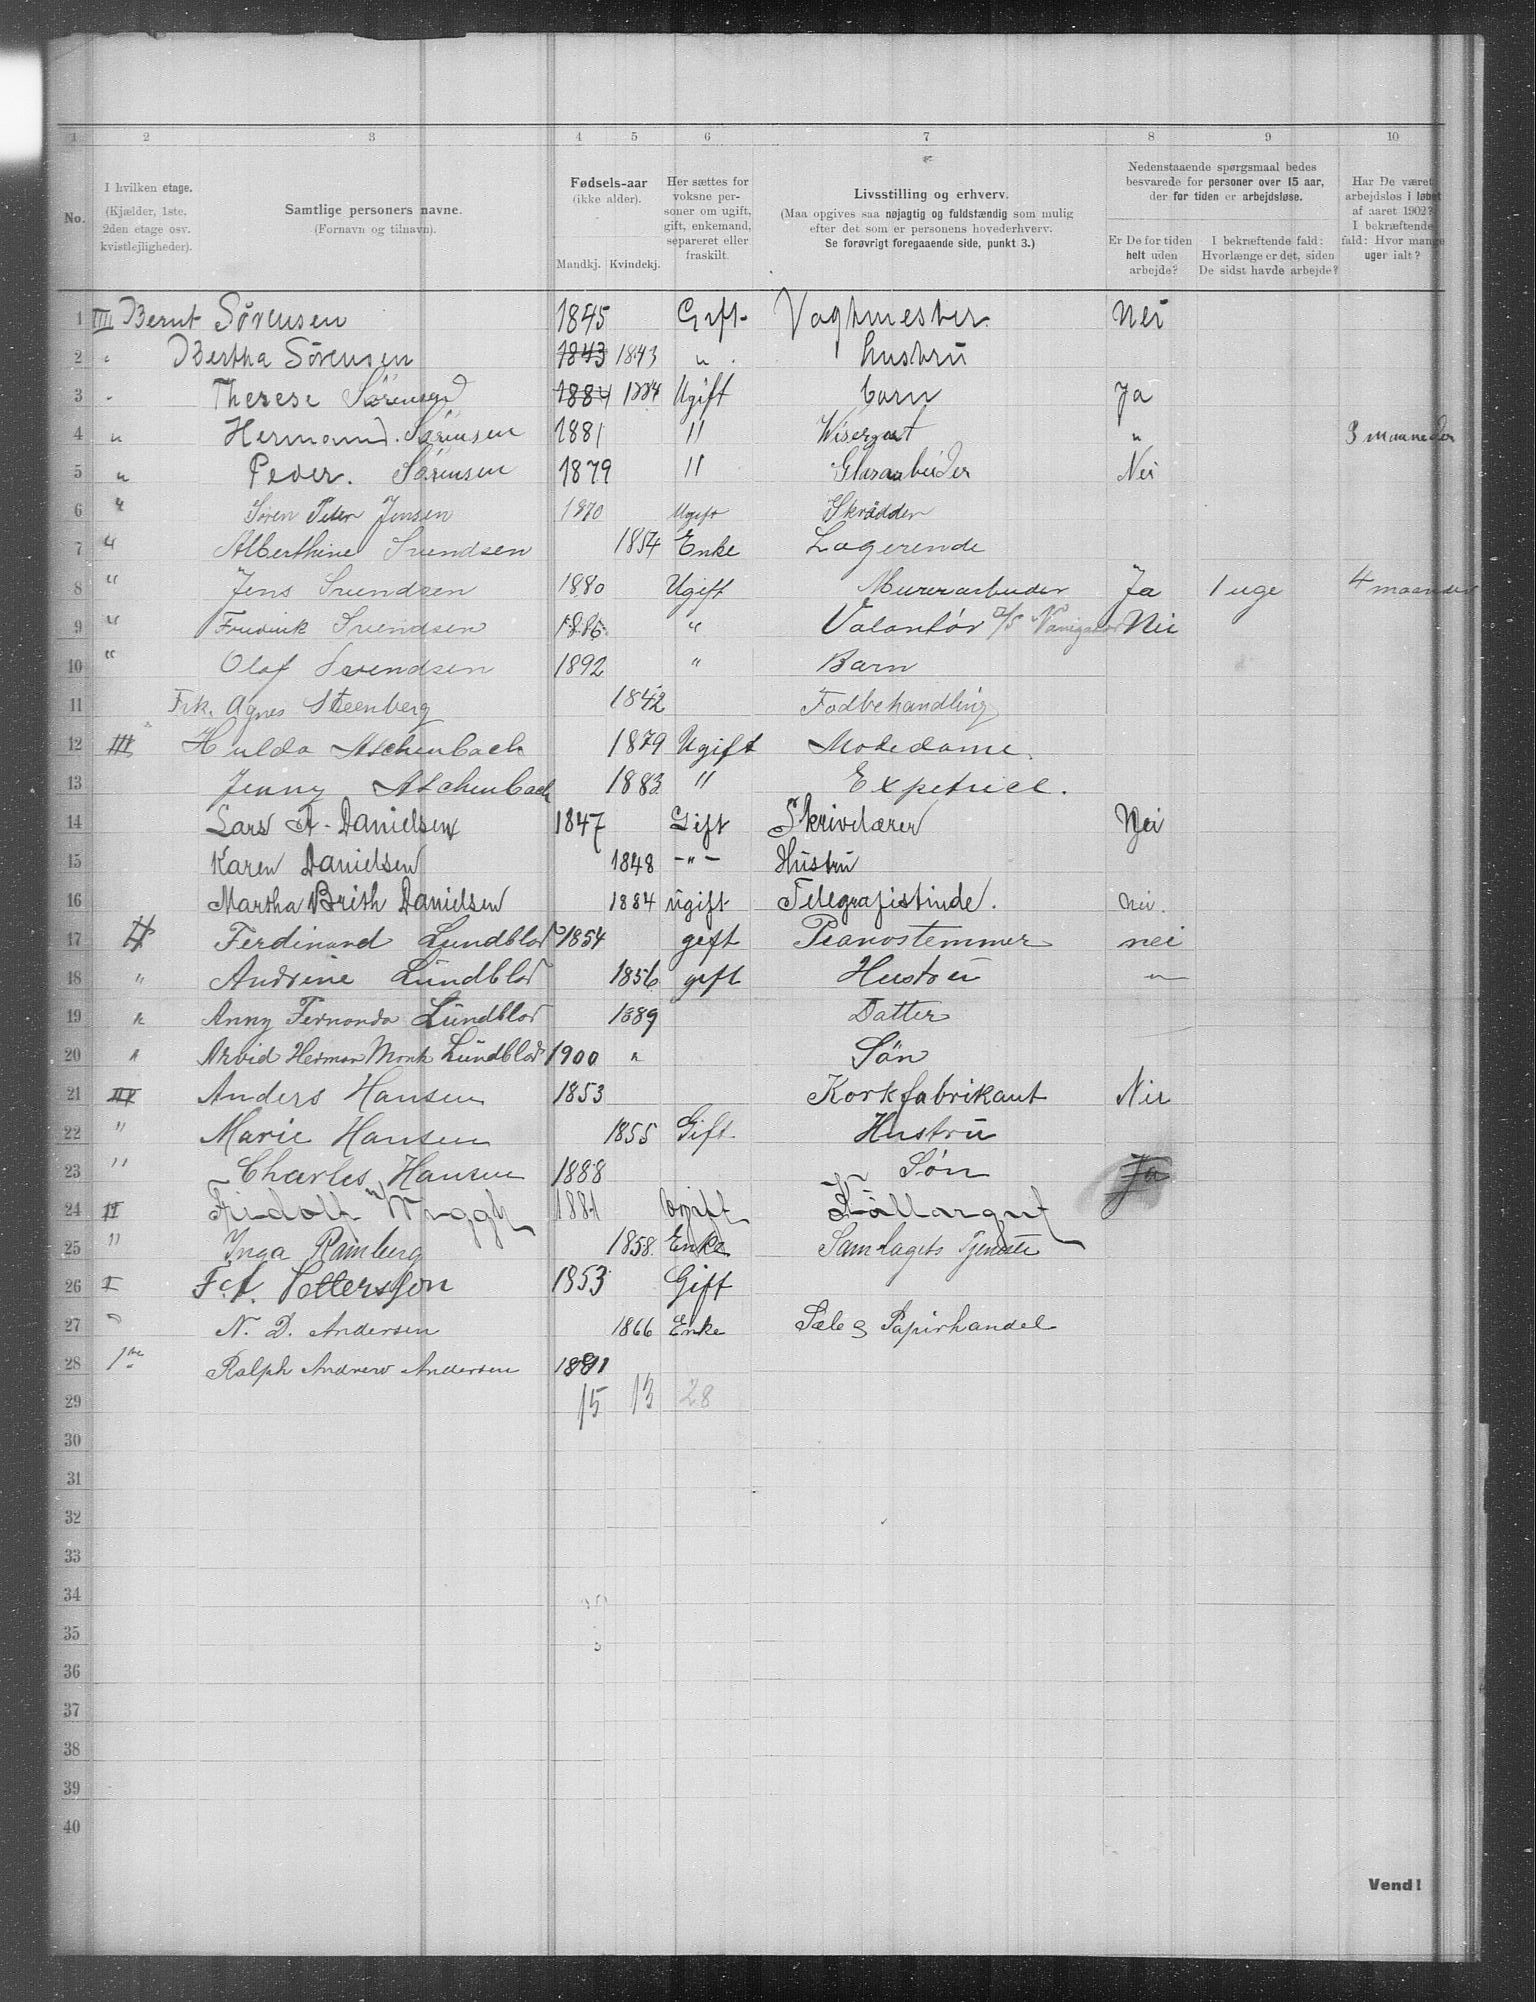 1 2 3 4 5 6 7 8 9 10
No.
I hvilken etage.
(Kjælder, 1ste, 2den etage osv. kvistlejligheder).
Samtlige personers navne.
(Fornavn og tilnavn).
Fødsels-aar
(ikke alder).
Mandkj. Kvindekj.
Her sættes for voksne personer om ugift, gift, enkemand, separeret eller fraskilt.
Livsstilling og erhverv.
(Maa opgives saa nøjagtig og fuldstændig som mulig
efter det som er personens hovederhverv.
Se forøvrigt foregaaende side, punkt 3.)
Nedenstaaende spørgsmaal bedes
besvarede for personer over 15 aar,
der for tiden er arbejdsløse.
Er De for tiden helt uden arbejde?
I bekræftende fald: Hvorlænge er det, siden De sidst havde arbejde?
Har De været arbejdsløs i løbet af aaret 1902? I bekræftende fald: Hvor mange uger ialt?
1 IIII Bernt Sørensen 1845 Gift Vagtmester. Nei
2 " Bertha Sørensen 1843 1843 " hustru
3 " Therese Sørensen 1884 1884 Ugift barn Ja
4 " Hermand. Sørensen 1881 " Wisergut " 3 maaneder
5 " Peder. Sørensen 1879 " Glasarbeider Nei
6 " Søren Peter Jensen 1870 Ugift Skrädder
7 " Alberthine Svendsen 1854 Enke Logerende
8 " Jens Svendsen 1880 Ugift Murerarbeider Ja 1 uge 4 maaneder
9 " Fredrik Svendsen 1886 " Volontør Nei
10 " Olaf Svendsen 1892 " Barn
11 Frk. Agnes Steenberg 1842 Fodbehandling
12 III Hulda Aschenbach 1879 Ugift Modedame.
13 Jenny Aschenbach 1883 " Expetrice.
14 Lars A. Danielsen 1847 Gift Skrivelærer Nei
15 Karen Danielsen 1848 -"- Hustru
16 Martha Brith Danielsen 1884 ugift Telegrafistinde. Nei.
17 II Ferdinand Lundblad 1854 gift Pianostemmer nei
18 " Andrine Lundblad 1856 gift Hustru "
19 " Anny Fernanda Lundblad 1889 Datter
20 " Arvid Herman Monk Lundblad 1900 " Søn
21 III Anders Hansen 1853 Korkfabrikant Nei
22 " Marie Hansen 1855 Gift Hustru
23 " Charles Hansen 1888 Søn Ja
24 II Fridolf 1881 Ugift
25 " Inga Ramberg 1858 Enke Samlagets Tjeneste
26 I F. A. Pettersson 1853 Gift
27 " N. D. Andersen 1866 Enke Papirhandel
28 1ste Ralph Andrew Andersen 1891
29 15 13 28
30
31
32
33
34
35
36
37
38
39
40
Vend!